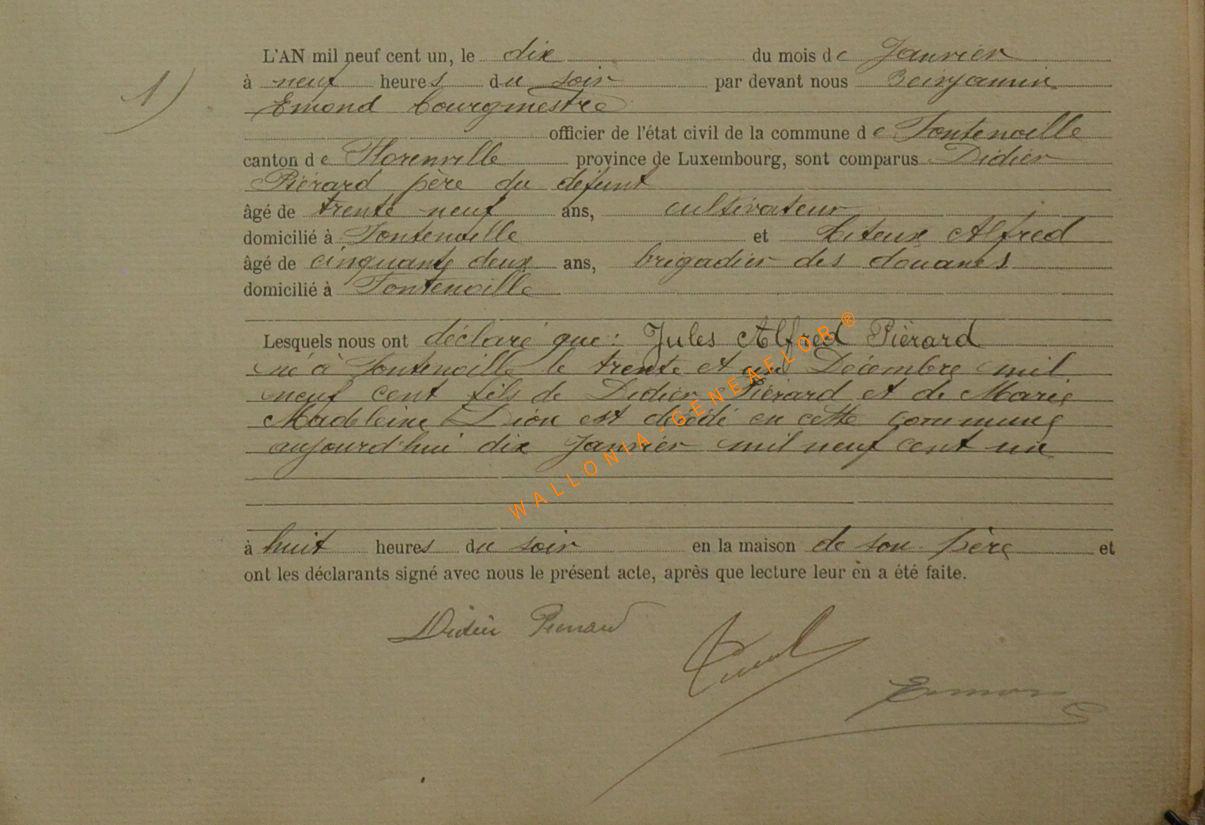 L'AN mil neuf cent un, le dix du mois de Janvier
1)
à neuf heures du soir par devant nous Benjamin
Emond bourgmestre
officier de l'état civil de la commune de Fontenoille
canton de Florenville province de Luxembourg, sont comparus Didier
Piérard père du défunt
âgé de trente neuf ans, cultivateur
domicilié à Fontenoille et Alfred
âgé de cinquante deux ans, brigadier des douanes
domicilié à Fontenoille
Lesquels nous ont déclaré que : Jules Alfred Piérard
né à Fontenoille le trente et un Décembre mil
neuf cent fils de Didier Piérard et de Marie
Madeleine Dion est décédé en cette commune
aujourd'hui dix Janvier mil neuf cent un
WALLONIA-GENEAFLOR®
à huit heures du soir en la maison de son père et
ont les déclarants signé avec nous le présent acte, après que lecture leur en a été faite.
Didier Pierard
Emond